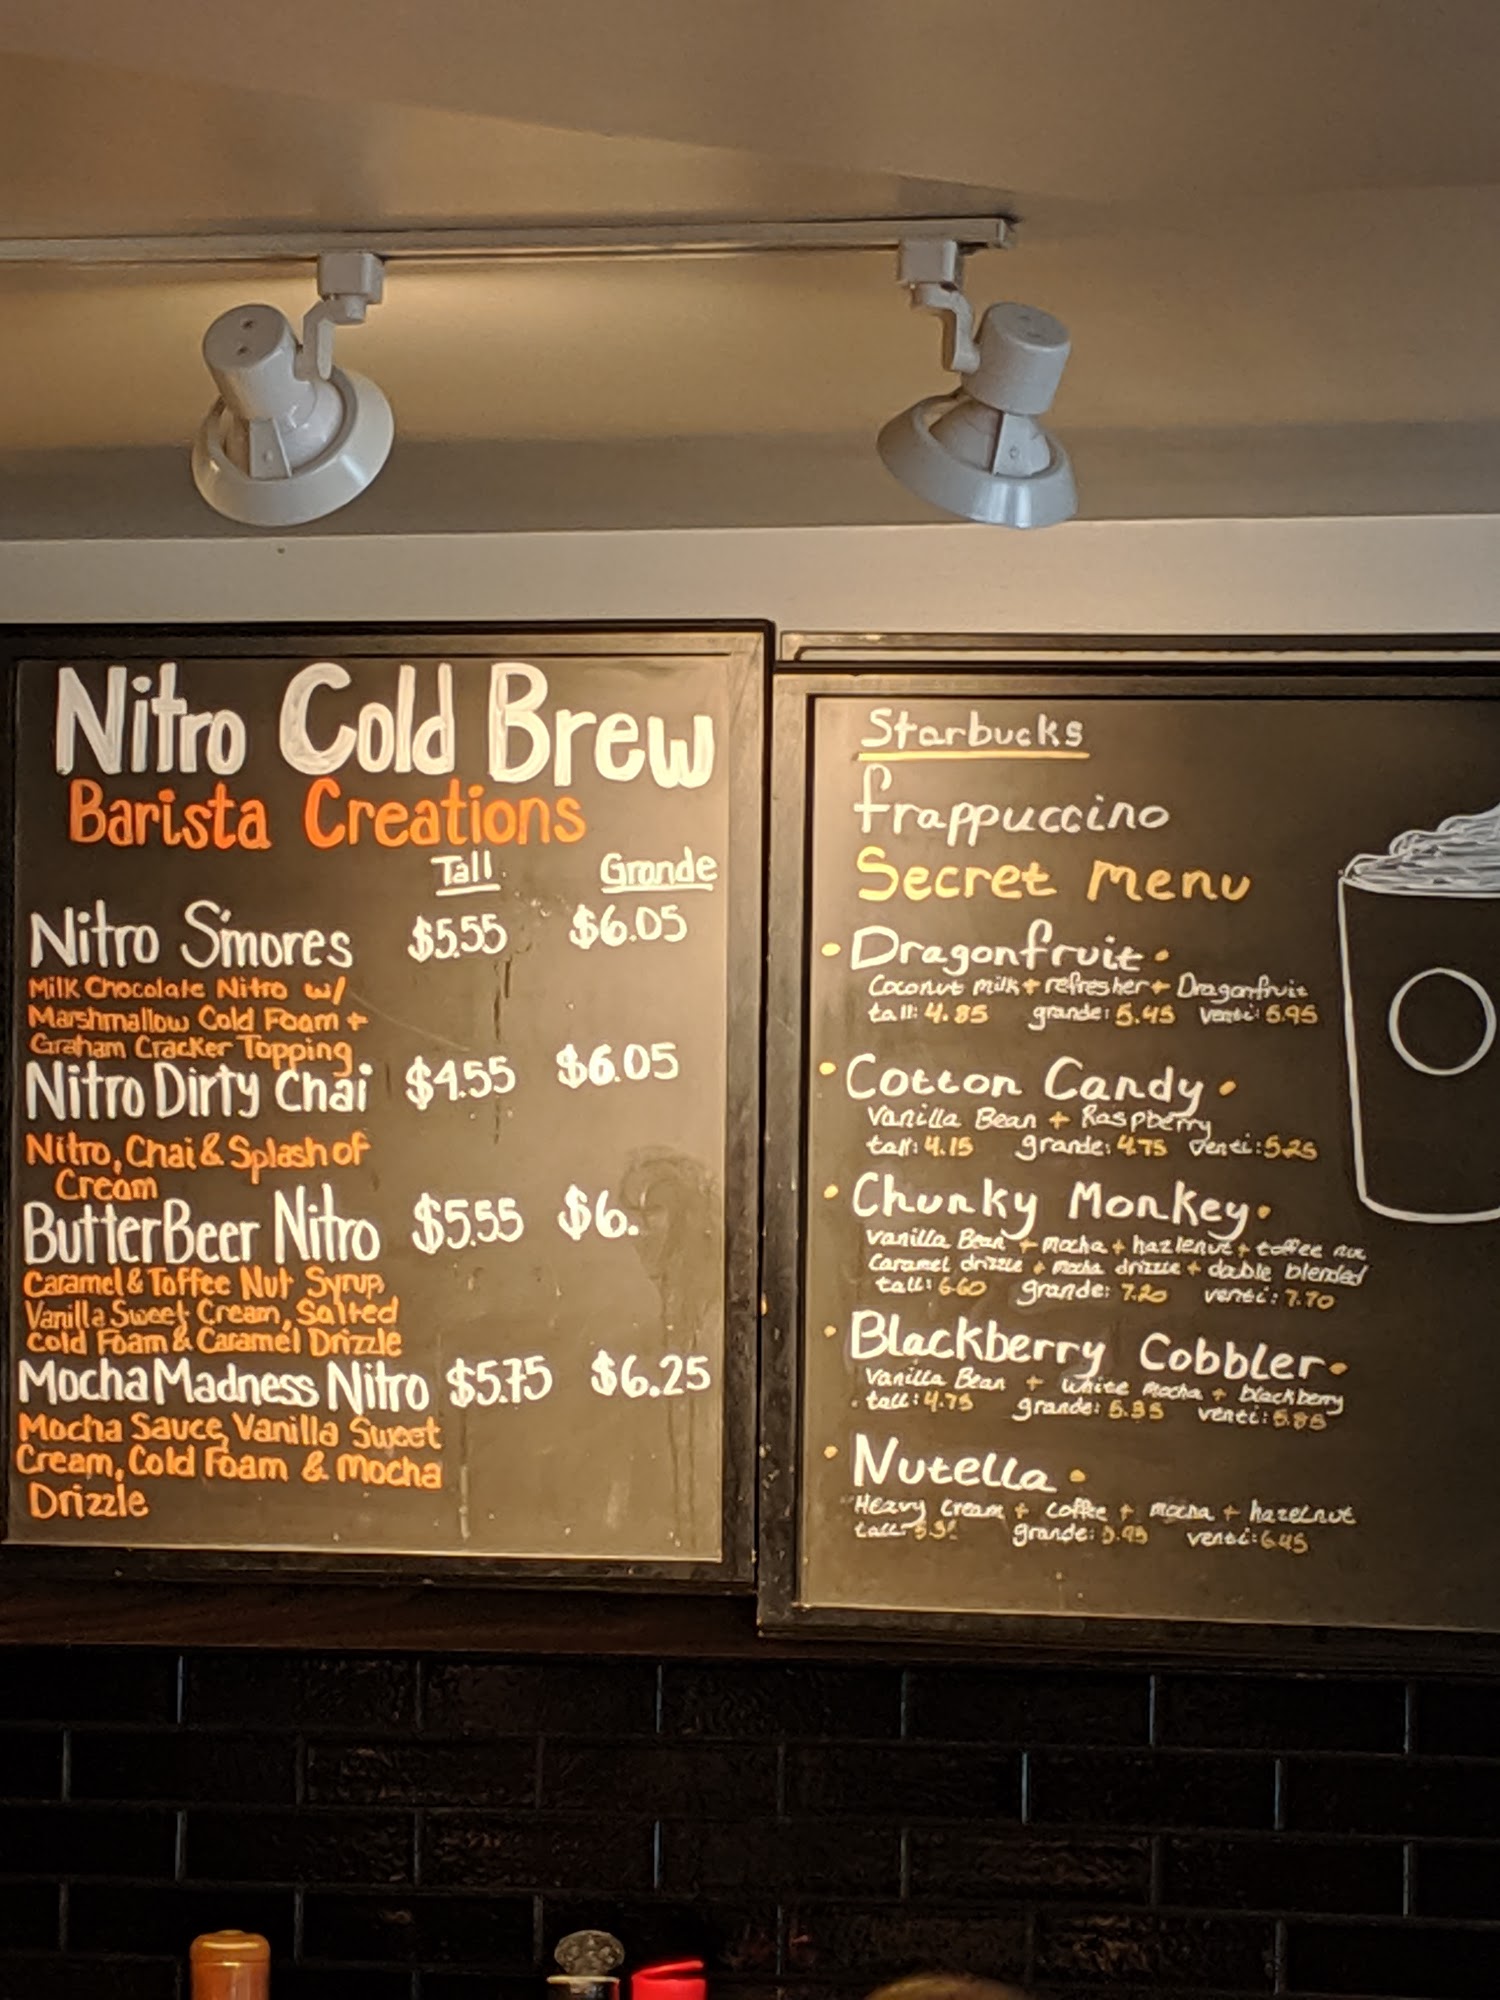 Nitro Cold Brew
Barista Creations
Tall Grande
Nitro S'mores $5.55 $6.05
Milk Chocolate Nitro w/
Marshmallow Cold Foam +
Graham Cracker Topping
Nitro Dirty Chai $4.55 $6.05
Nitro, Chai & Splash of
Cream
ButterBeer Nitro $5.55 $6.
Caramel & Toffee Nut Syrup,
Vanilla Sweet Cream, Salted
Cold Foam & Caramel Drizzle
Mocha Madness Nitro $5.75 $6.25
Mocha Sauce, Vanilla Sweet
Cream, Cold Foam & Mocha
Drizzle
Starbucks
frappuccino
Secret Menu
• Dragonfruit •
Coconut milk + refresher + Dragonfruit
tall: 4.85 grande: 5.45 venti: 5.95
• Cotton Candy •
Vanilla Bean + Raspberry
tall: 4.15 grande: 4.75 venti: 5.25
• Chunky Monkey •
Vanilla Bean + mocha + hazlenut + toffee nut
Caramel drizzle + mocha drizzle + double blended
tall: 6.60 grande: 7.20 venti: 7.70
• Blackberry Cobbler •
Vanilla Bean + white mocha + blackberry
tall: 4.75 grande: 5.35 venti: 5.85
• Nutella •
Heavy cream + coffee + mocha + hazelnut
tall: grande: 5.95 venti: 6.45